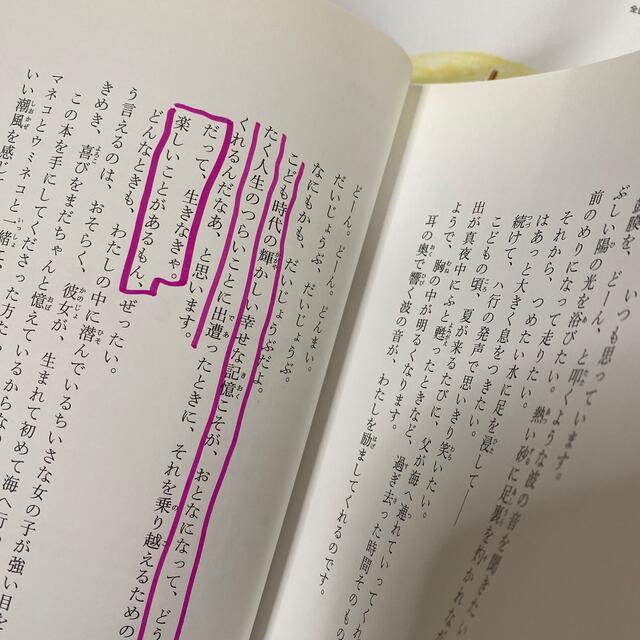 鼓膜を、どーん、と叩くような波の音を聞きたい
ぶしい陽の光を浴びたい。熱い砂に足裏を灼かれなが
前のめりになって走りたい。
それから、つめたい水に足を浸して――
はあっと大きく息をつきたい。
続けて、ハ行の発声で思いきり笑いたい。
いつも思っています。
こどもの頃、夏が来るたびに、父が海へ連れていってくれ
出が真夜中にふと甦ったときなど、過ぎ去った時間そのもの
ようで、胸の中が明るくなります。
耳の奥で響く波の音が、わたしを励ましてくれるのです。
どーん。どーん。どんまい。
だいじょうぶ、だいじょうぶ。
なにもかも、だいじょうぶだよ。
こども時代の輝かしい幸せな記憶こそが、おとなになって、どう
たく人生のつらいことに出遭ったときに、それを乗り越えるための
くれるんだなあ、と思います。
だって、生きなきゃ。
楽しいことがあるもん、ぜったい。
どんなときも、わたしの中に潜んでいるちいさな女の子が強い目を
う言えるのは、おそらく、彼女が、生まれて初めて海へ行
きめき、喜びをまだちゃんと憶えているからなり
この本を手にしてくださった方た
マネコとウミネコと一緒に、
いい潮風を感じ